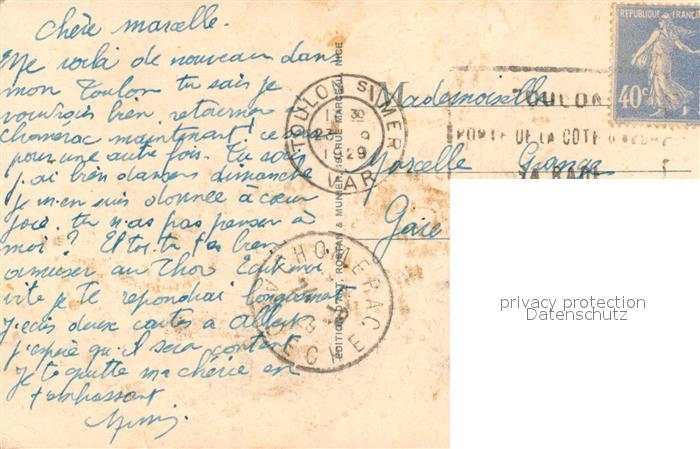 Chère Marcelle.
Me voilà de nouveau dans
mon Toulon tu sais je
voudrais bien retourner à
chomerac maintenant! ce sera
pour une autre fois. Tu sais
j.ai bien danser dimanche
je m.en suis donnée à cœur
joie. tu n.as pas penser à
moi? Et toi. tu t'es bien
amuser au Thor Ecris moi
vite je te repondrai longuement
j.ecis deux cartes a Albert
j.espère qu.il sera content
je te quitte ma chérie en
t'embrassant
Mademoiselle
Marcelle
Gare
TOULON S/MER
1929
VAR
TOULON
PORTE DE LA COTE D'AZUR
SA RADE
REPUBLIQUE FRANÇAISE
40c
CHOMERAC
ARDECHE
EDITIONS D'ART, ROSTAN & MUNIER, 19, RUE MARCEAU, NICE
privacy protection
Datenschutz